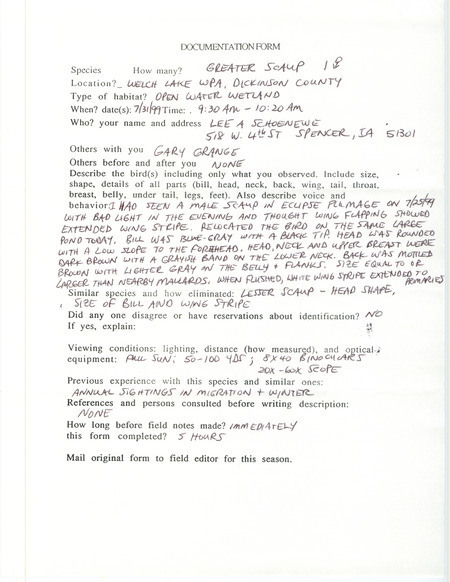 DOCUMENTATION FORM
Species How many? GREATER SCAUP 1♂
Location? WELCH LAKE WPA, DICKINSON COUNTY
Type of habitat? OPEN WATER WETLAND
When? date(s): 7/31/99 Time: 9:30 AM - 10:20 AM
Who? your name and address LEE A SCHOENEWE
518 W. 4th ST SPENCER, IA 51301
Others with you GARY GRANGE
Others before and after you NONE
Describe the bird(s) including only what you observed. Include size,
shape, details of all parts (bill, head, neck, back, wing, tail, throat,
breast, belly, under tail, legs, feet). Also describe voice and
behavior: I HAD SEEN A MALE SCAUP IN ECLIPSE PLUMAGE ON 7/25/99
WITH BAD LIGHT IN THE EVENING AND THOUGHT WING FLAPPING SHOWED
EXTENDED WING STRIPE. RELOCATED THE BIRD ON THE SAME LARGE
POND TODAY. BILL WAS BLUE-GRAY WITH A BLACK TIP. HEAD WAS ROUNDED
WITH A LOW SLOPE TO THE FOREHEAD. HEAD, NECK AND UPPER BREAST WERE
DARK BROWN WITH A GRAYISH BAND ON THE LOWER NECK. BACK WAS MOTTLED
BROWN WITH LIGHTER GRAY ON THE BELLY + FLANKS. SIZE EQUAL TO OR
LARGER THAN NEARBY MALLARDS. WHEN FLUSHED, WHITE WING STRIPE EXTENDED TO
PRIMARIES
Similar species and how eliminated: LESSER SCAUP - HEAD SHAPE,
SIZE OF BILL AND WING STRIPE
Did any one disagree or have reservations about identification? NO
If yes, explain:
Viewing conditions: lighting, distance (how measured), and optical
equipment: FULL SUN; 50-100 YDS; 8X40 BINOCULARS
20X-60X SCOPE
Previous experience with this species and similar ones:
ANNUAL SIGHTINGS IN MIGRATION + WINTER
References and persons consulted before writing description:
NONE
How long before field notes made? IMMEDIATELY
this form completed? 5 HOURS
Mail original form to field editor for this season.